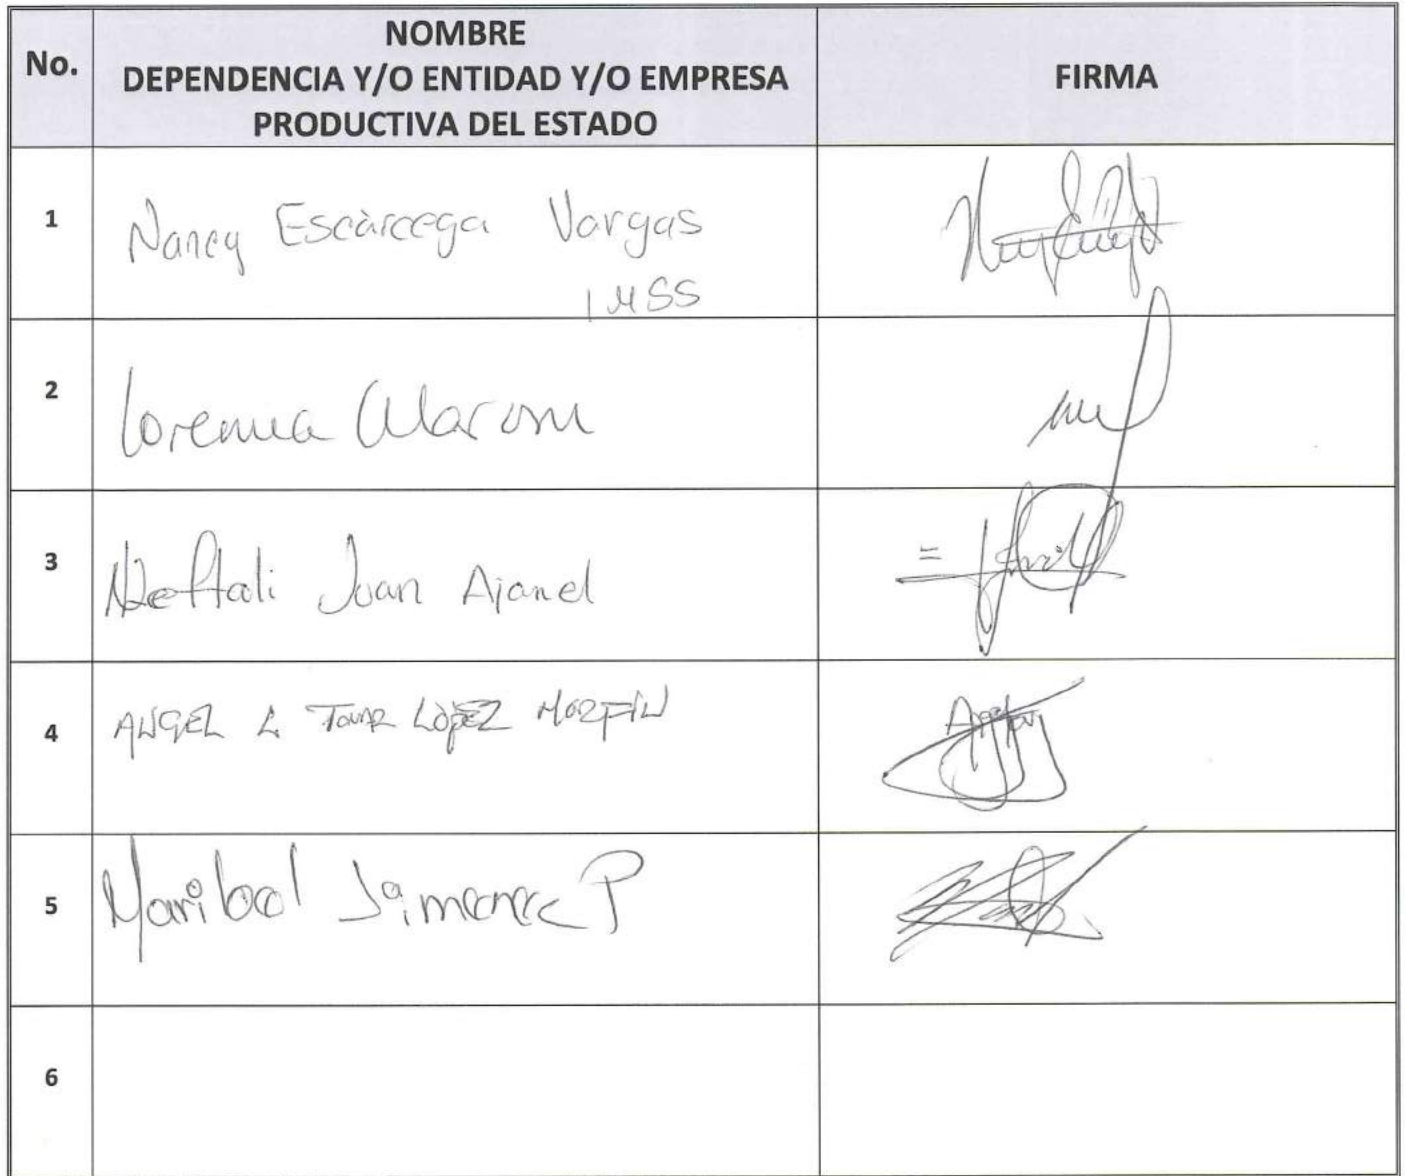 No.
NOMBRE
DEPENDENCIA Y/O ENTIDAD Y/O EMPRESA
PRODUCTIVA DEL ESTADO
FIRMA
1
Nancy Escàrcega Vargas
IMSS
2
Lorenia
3
Neftali Juan Ajanel
4
ANGEL L Tovar LòpEZ MORFIN
5
Maribel Jimenez P
6